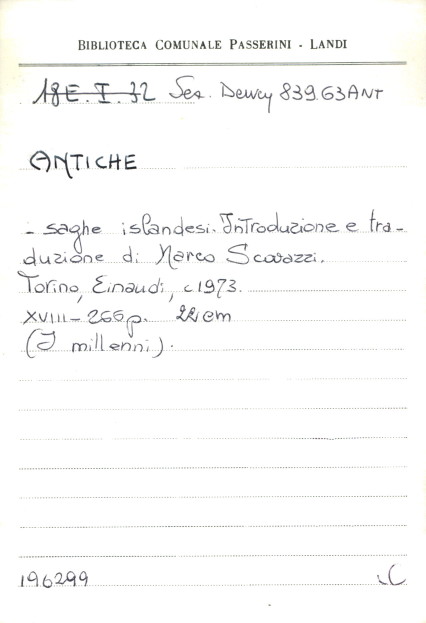 BIBLIOTECA COMUNALE PASSERINI - LANDI
18E.I.32 Sez. Dewey 839.63 ANT
ANTICHE
- saghe islandesi. Introduzione e tra-
duzione di Marco Scovazzi.
Torino, Einaudi, c1973.
XVIII-266p. 22cm
(I millenni).
196299